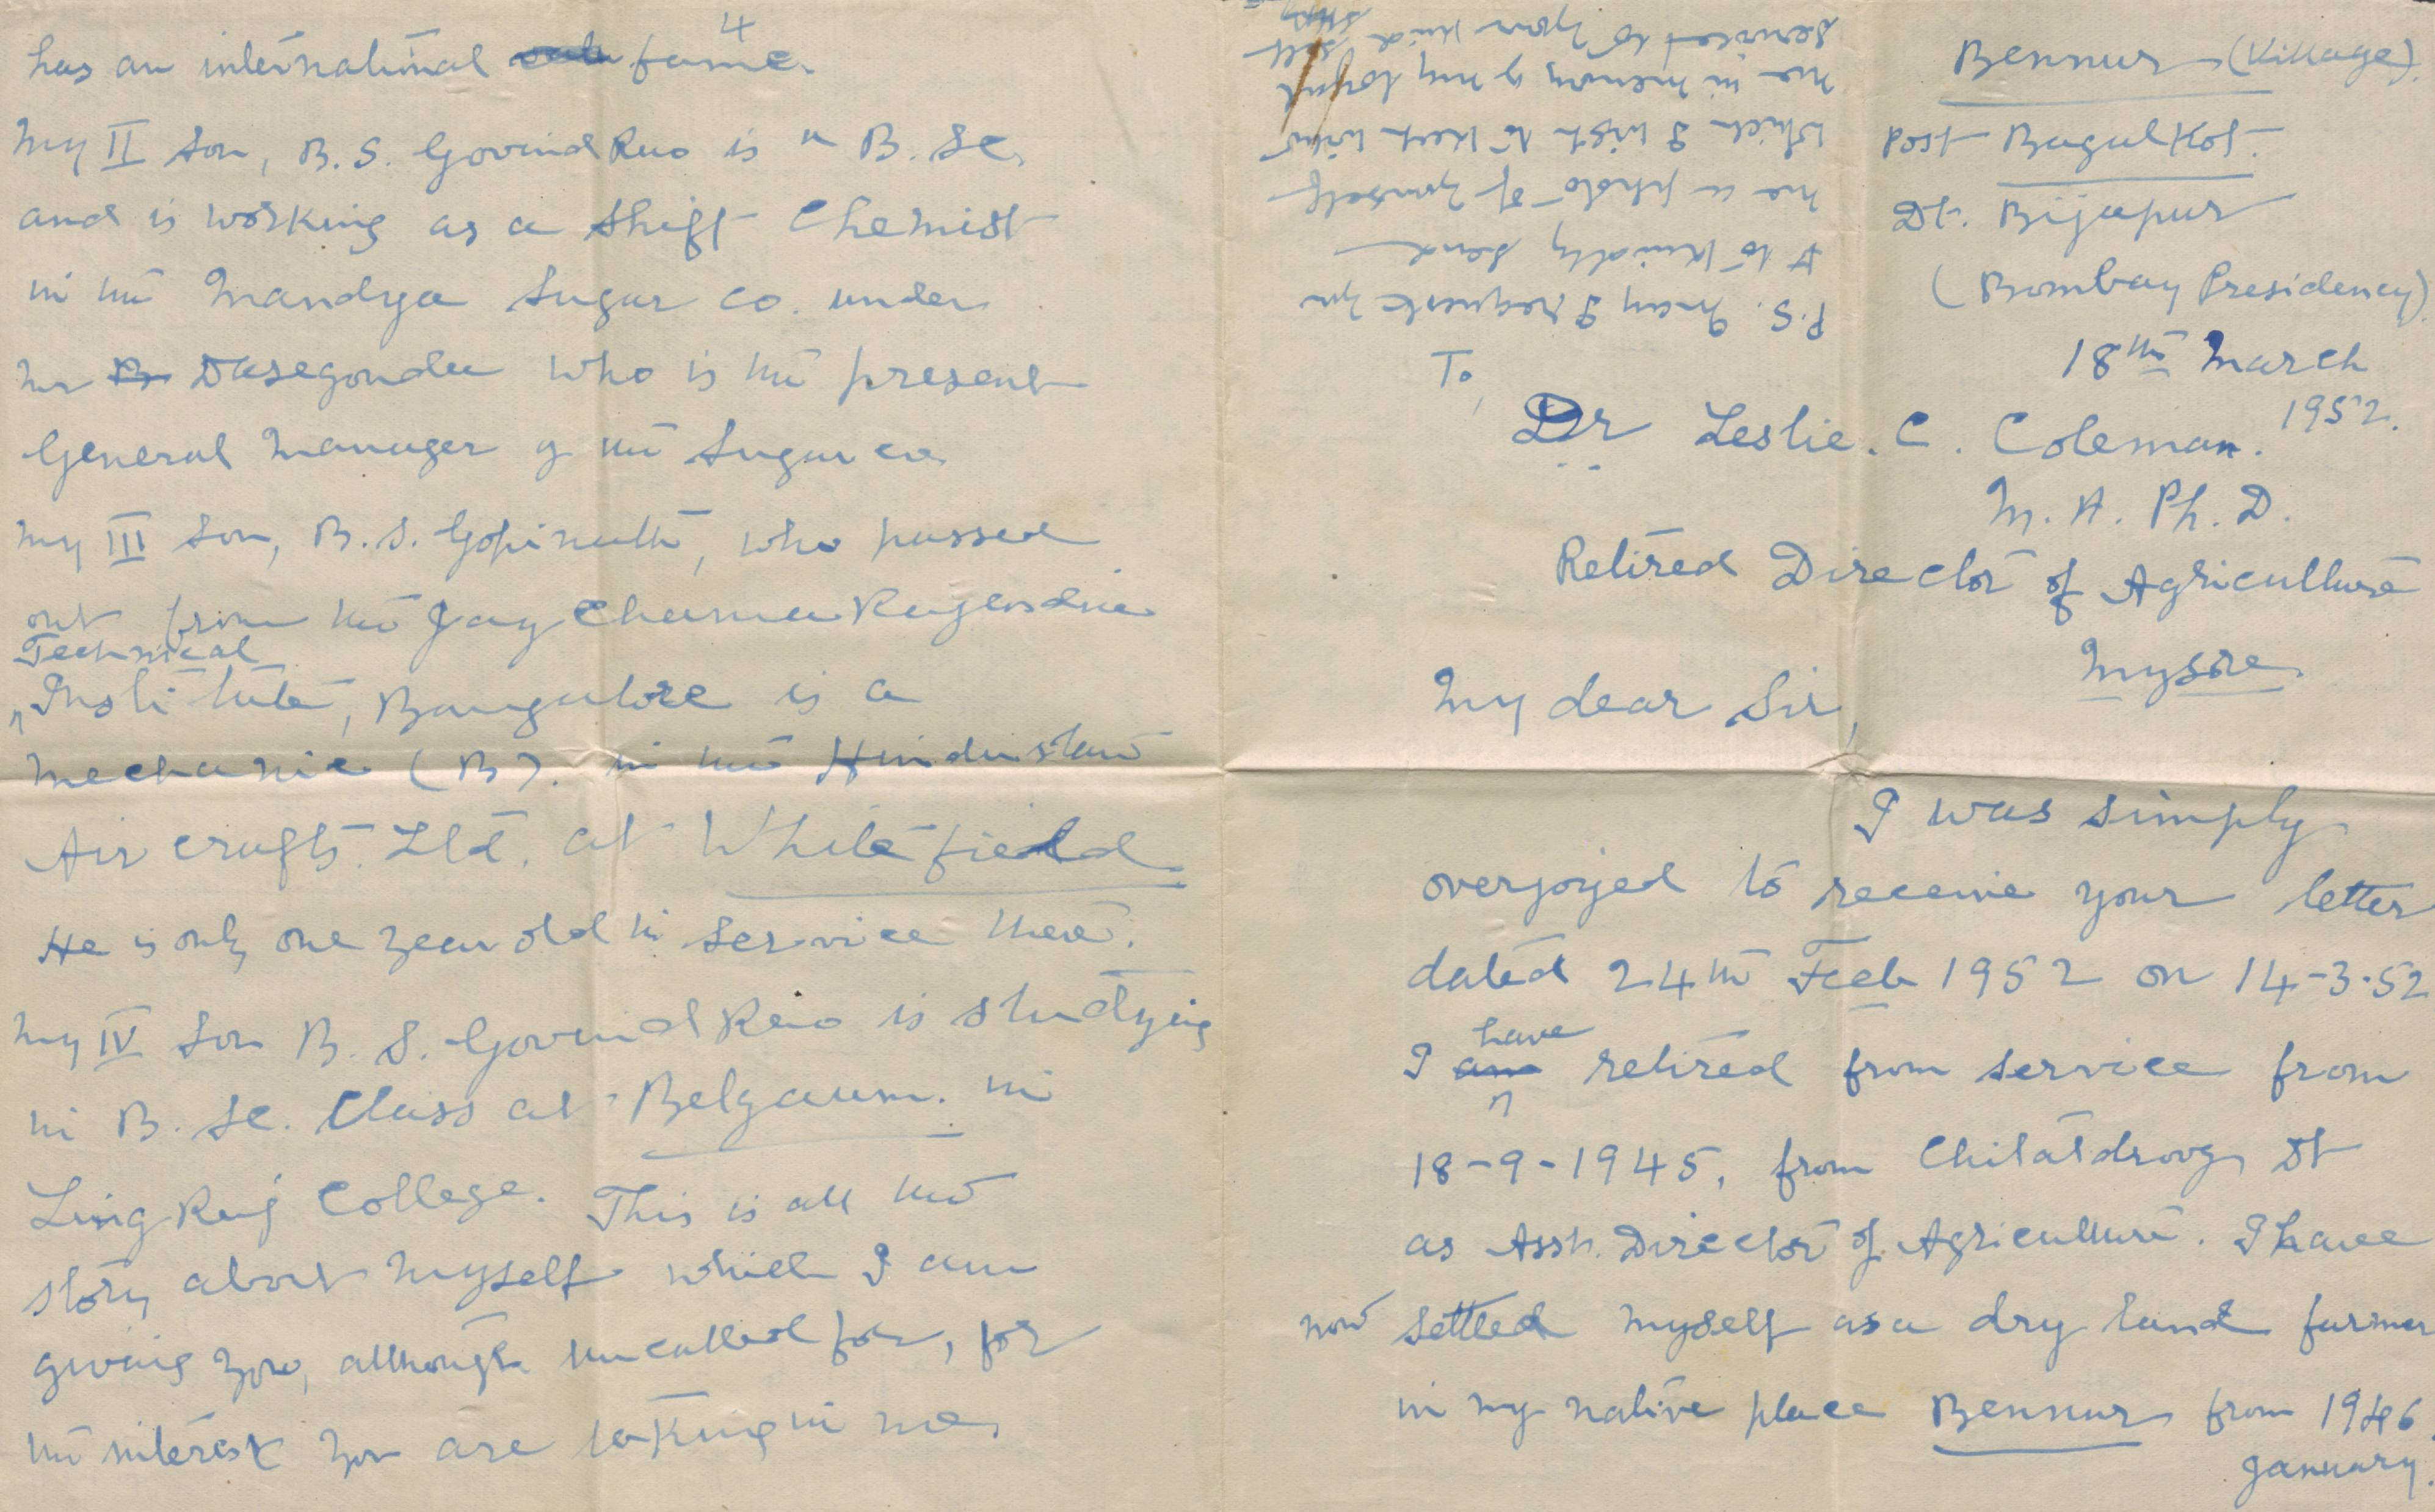 4
has an international fame.
My II Son, B.S. Govind Rao is a B.Sc.
and is working as a Shift Chemist
in the Mandya Sugar co. under
Mr Dasegonda who is the present
General Manager of the Sugar co.
My III Son, B.S. Gopinath, who passed
out from the Jay Chama Rajendra
Technical
Institute, Bangalore is a
Mechanic (B). in the Hindustan
Air crafts. Ltd. at Whitefield
He is only one year old in service there.
My IV Son B.S. Govind Rao is studying
in B.Sc. Class at Belgaum. in
Ling Raj College. This is all the
story about myself which I am
giving you, although uncalled for, for
the interest you are taking in me.
Bennur (Village).
Post Bagalkot.
Dt. Bijapur
(Bombay Presidency)
18th March
1952.
To,
Dr Leslie. C. Coleman.
M.A. Ph.D.
Retired Director of Agriculture
Mysore
My dear Sir,
I was simply
overjoyed to receive your letter
dated 24th Feb 1952 on 14-3-52
have
I am retired from service from
18-9-1945, from Chitaldroog Dt
as Asst. Director of Agriculture. I have
now settled myself as a dry land farmer
in my native place Bennur from 1946
January.
P.S. May I request you
to kindly send
me a photo of yourself
which I wish to keep with
me in memory of my loyal
services to your kind self